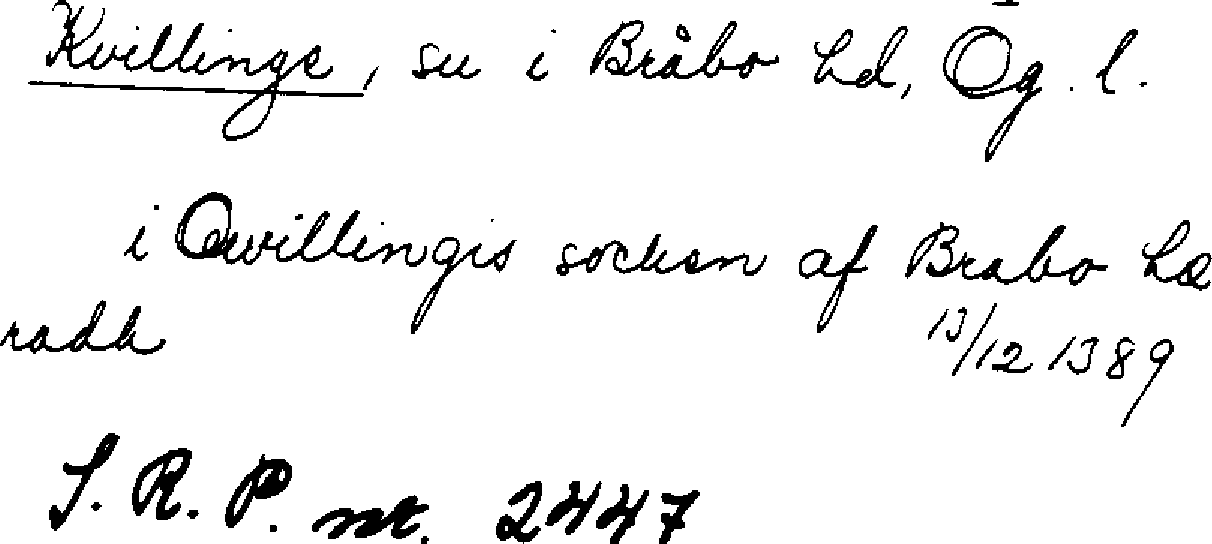 Kvillinge, sn i Bråbo hd, Ög. l.
i Qwillingis sockn af Brabo hæ
radh
13/12 1389
S. R. P. nr. 2447